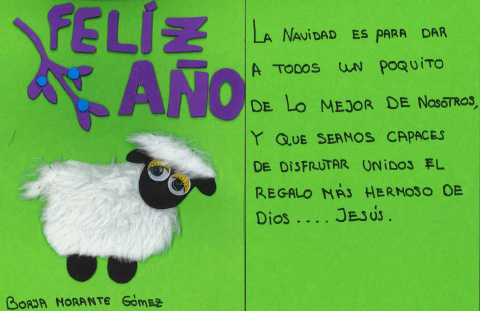 FELÍZ
AÑO
BORJA MORANTE GÓMEZ
LA NAVIDAD ES PARA DAR
A TODOS UN POQUITO
DE LO MEJOR DE NOSOTROS,
Y QUE SEAMOS CAPACES
DE DISFRUTAR UNIDOS EL
REGALO MÁS HERMOSO DE
DIOS .... JESÚS.